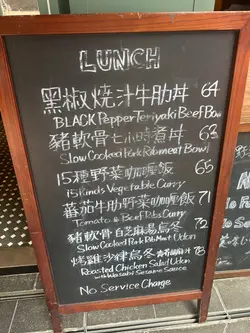 LUNCH
黑椒燒汁牛肋丼 64
BLACK Pepper Teriyaki Beef Bowl
豬軟骨七小時煮丼 63
Slow Cooked Pork Rib meat Bowl
15種野菜咖喱飯 65
15 kinds Vegetable Curry
蕃茄牛肋野菜咖喱飯 71
Tomato & Beef Ribs Curry
豬軟骨白芝麻湯烏冬 72
Slow Cooked Pork Rib Meat Udon
烤雞沙律烏冬 78
Roasted Chicken Salad Udon
with Wasabi Sesame Sauce
No Service Change